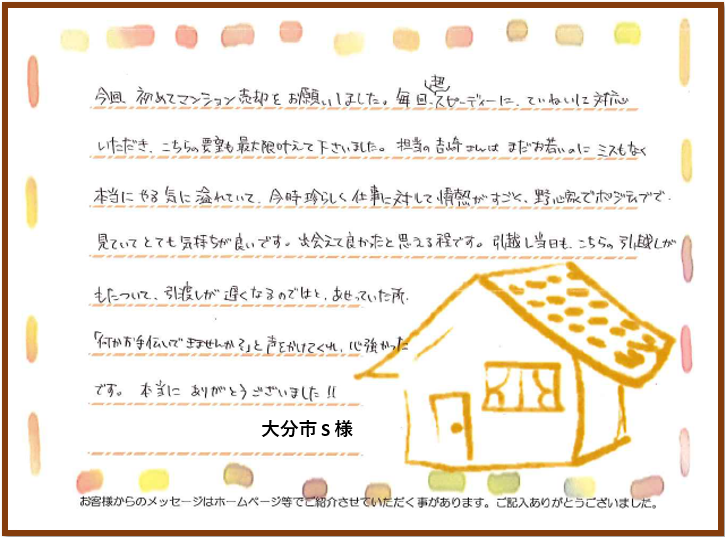 今回、初めてマンション売却をお願いしました。毎回、超スピーディーに、ていねいに対応
いただき、こちらの要望も最大限叶えて下さいました。担当の吉崎さんは まだお若いのに ミスもなく
本当に やる気に溢れていて、今時珍らしく仕事に対して情熱がすごく、野心家でポジティブで、
見ていてとても気持ちが良いです。出会えて良かったと思える程です。引越し当日も、こちらの引越しが
もたついて、引渡しが 遅くなるのではと、あせっていた所、
「何かお手伝いできませんか?」と声をかけてくれ、心強かった
です。 本当に ありがとうございました!!
大分市 S 様
お客様からのメッセージはホームページ等でご紹介させていただく事があります。ご記入ありがとうございました。